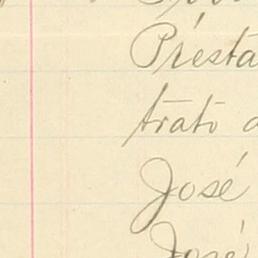 Présta
trato
José
José